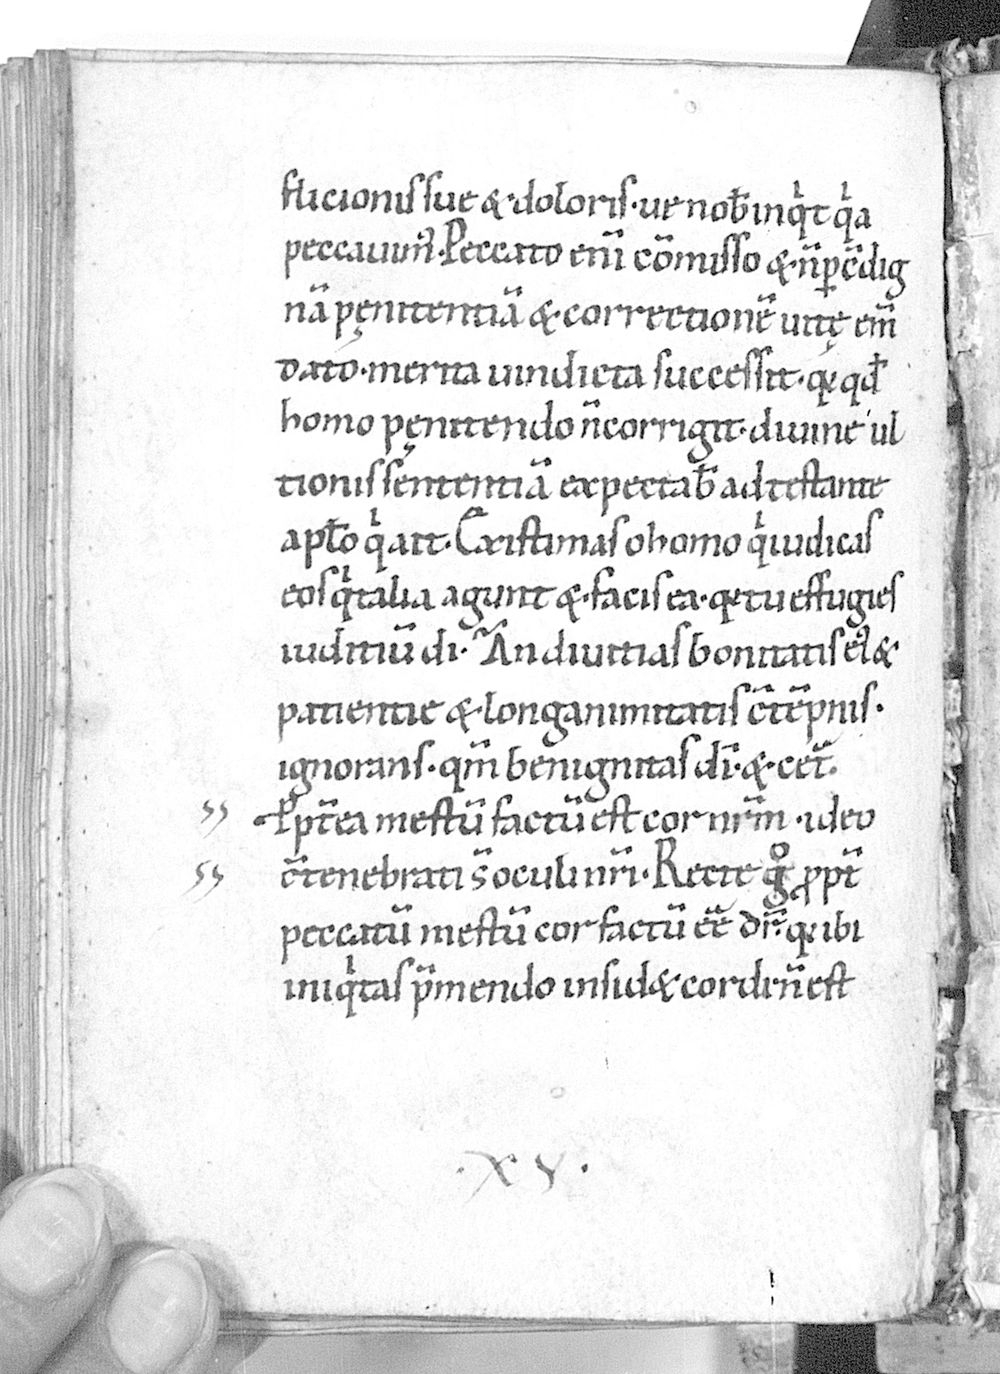 flicionis sue &·doloris·ue nob̅ inqͥt qͥa
peccauim᷒·Peccato eni̅ co̅misso &·n̅ p c̅dig
na̅ pęnitentia̅ &·correctione̅ uitę em̅
dato·merita uindicta successit·q; qd̅
homo pęnitendo n̅ corrigit·diuine ul
tionis sententia̅ expectab̅ adtestante
apl̅o qͥ ait·Existimas o homo qͥ iudicas
eos qͥ talia agunt &·facis ea·q; tu effugies
iuditiu̅ di̅·An diuitias bonitatis ei᷒ &
patientie &·longanimitatis c̅te̅pnis·
ignorans·qm̅ benignitas di̅·&·cet̅.
Ppt̅ea mestu̅ factu̅ est cor nr̅m·ideo
c̅tenebrati s̅ oculi nr̅i·Recte gͦ ppt̅
peccatu̅ mestu̅ cor factu̅ ee̅ dr̅·q; ibi
iniqͥtas p̅mendo insid& cordi n̅ est
·XV·